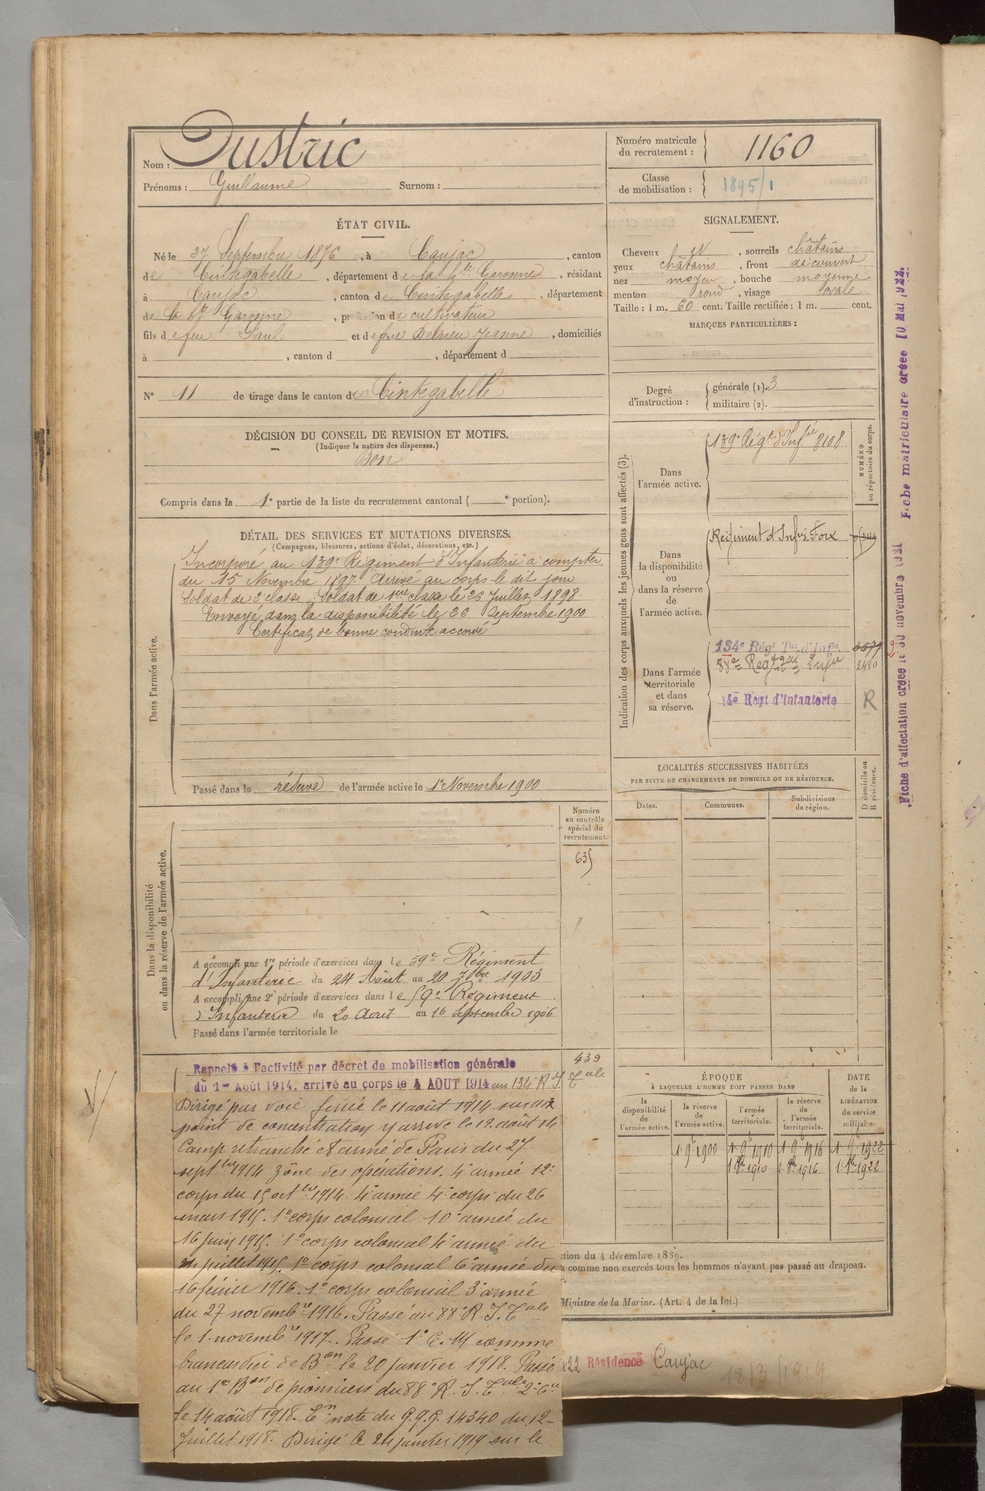 Nom : Dustric
Prénoms : Guillaume Surnom :
Numéro matricule
du recrutement : 1160
Classe
de mobilisation : 1895/1
ÉTAT CIVIL.
Né le 27 Septembre 1876, à Caujac, canton
de Cintegabelle, département de la Hte Garonne, résidant
à Caujac, canton de Cintegabelle, département
de la Hte Garonne, profession de cultivateur
fils de feu Paul et de feue Delrieu Jeanne, domiciliés
à , canton d , département d
N° 11 de tirage dans le canton de Cintegabelle
SIGNALEMENT.
Cheveux N, sourcils châtains
yeux châtains, front découvert
nez moyen, bouche moyenne
menton rond, visage ovale
Taille : 1 m. 60 cent. Taille rectifiée : 1 m. cent.
MARQUES PARTICULIÈRES :
Degré
d'instruction :
générale (1). 3
militaire (2).
DÉCISION DU CONSEIL DE REVISION ET MOTIFS.
(Indiquer la nature des dispenses.)
Bon
Compris dans la 1e partie de la liste du recrutement cantonal ( e portion).
DÉTAIL DES SERVICES ET MUTATIONS DIVERSES.
(Campagnes, blessures, actions d'éclat, décorations, etc.)
Dans l'armée active.
Incorporé au 139e Régiment d'Infanterie à compter
du 15 Novembre 1897. Arrivé au corps le dit jour
Soldat de 2e classe. Soldat de 1ere classe le 25 Juillet 1898
Envoyé dans la disponibilité le 20 Septembre 1900
Certificat de bonne conduite accordé
Passé dans la réserve de l'armée active le 1er Novembre 1900
Indication des corps auxquels les jeunes gens sont affectés (3).
NUMÉRO
au répertoire du corps.
Dans
l'armée active.
139e Régt d'Infie 8108
Dans
la disponibilité
ou
dans la réserve
de
l'armée active.
Régiment d'Infie Foix
Dans l'armée
territoriale
et dans
sa réserve.
134e Rég. Ter. d'Inf.
88e Regt Tal Infie 2480
14e Regt d'Infanterie R
LOCALITÉS SUCCESSIVES HABITÉES
PAR SUITE DE CHANGEMENTS DE DOMICILE OU DE RÉSIDENCE.
Dates. Communes. Subdivisions
de région.
D domicile ou
R résidence.
Dans la disponibilité
ou dans la réserve de l'armée active.
Numéro
au contrôle
spécial du
recrutement.
635
A accompli une 1re période d'exercices dans le 59e Régiment
d'Infanterie du 24 Août au 20 7bre 1903
A accompli une 2e période d'exercices dans le 59e Régiment
d'Infanterie du 20 Août au 16 Septembre 1906
Passé dans l'armée territoriale le
439
Rappelé à l'activité par décret de mobilisation générale
du 1er Août 1914, arrivé au corps le 4 AOUT 1914 au 134e R.I. Tale
Dirigé par voie ferrée le 11 août 1914 sur un
point de concentration y arrive le 12 août 14
Camp retranché et armée de Paris du 27
septbre 1914 zône des opérations. 4e armée 12e
corps du 15 octbre 1914. 4e armée 4e corps du 26
mars 1915. 1e corps colonial 10e armée du
16 juin 1915. 1e corps colonial 4e armée du
juillet 1915. 1e corps colonial 6e armée du
16 février 1916. 1e corps colonial 3e armée
du 27 novembre 1916. Passé au 88e R.I. Tale
le 1 novembre 1917. Passé 1e C. 14 comme
brancardier de Bon le 20 janvier 1918. Passé
au 1er Bon de pionniers du 88e R.I. Tale 2e Cie
le 14 août 1918. En note du G.Q.G. 14340 du 12
Juillet 1918. Dirigé le 24 janvier 1919 sur le
ÉPOQUE
À LAQUELLE L'HOMME DOIT PASSER DANS
la
disponibilité
de
l'armée active.
la réserve
de
l'armée active.
l'armée
territoriale.
la réserve
de
l'armée
territoriale.
DATE
de la
LIBÉRATION
du service
militaire.
1 9e 1900 1 9e 1910 1 9e 1916 1 9e 1922
1 8bre 1910 1 8bre 1916 1 8bre 1922
ction du 4 décembre 1889.
comme non exercés tous les hommes n'ayant pas passé au drapeau.
Ministre de la Marine. (Art. 4 de la loi.)
22 Résidence Caujac
Fiche matriculaire créée 10 Mai 1922.
Fiche d'affectation créée le 30 novembre 1921